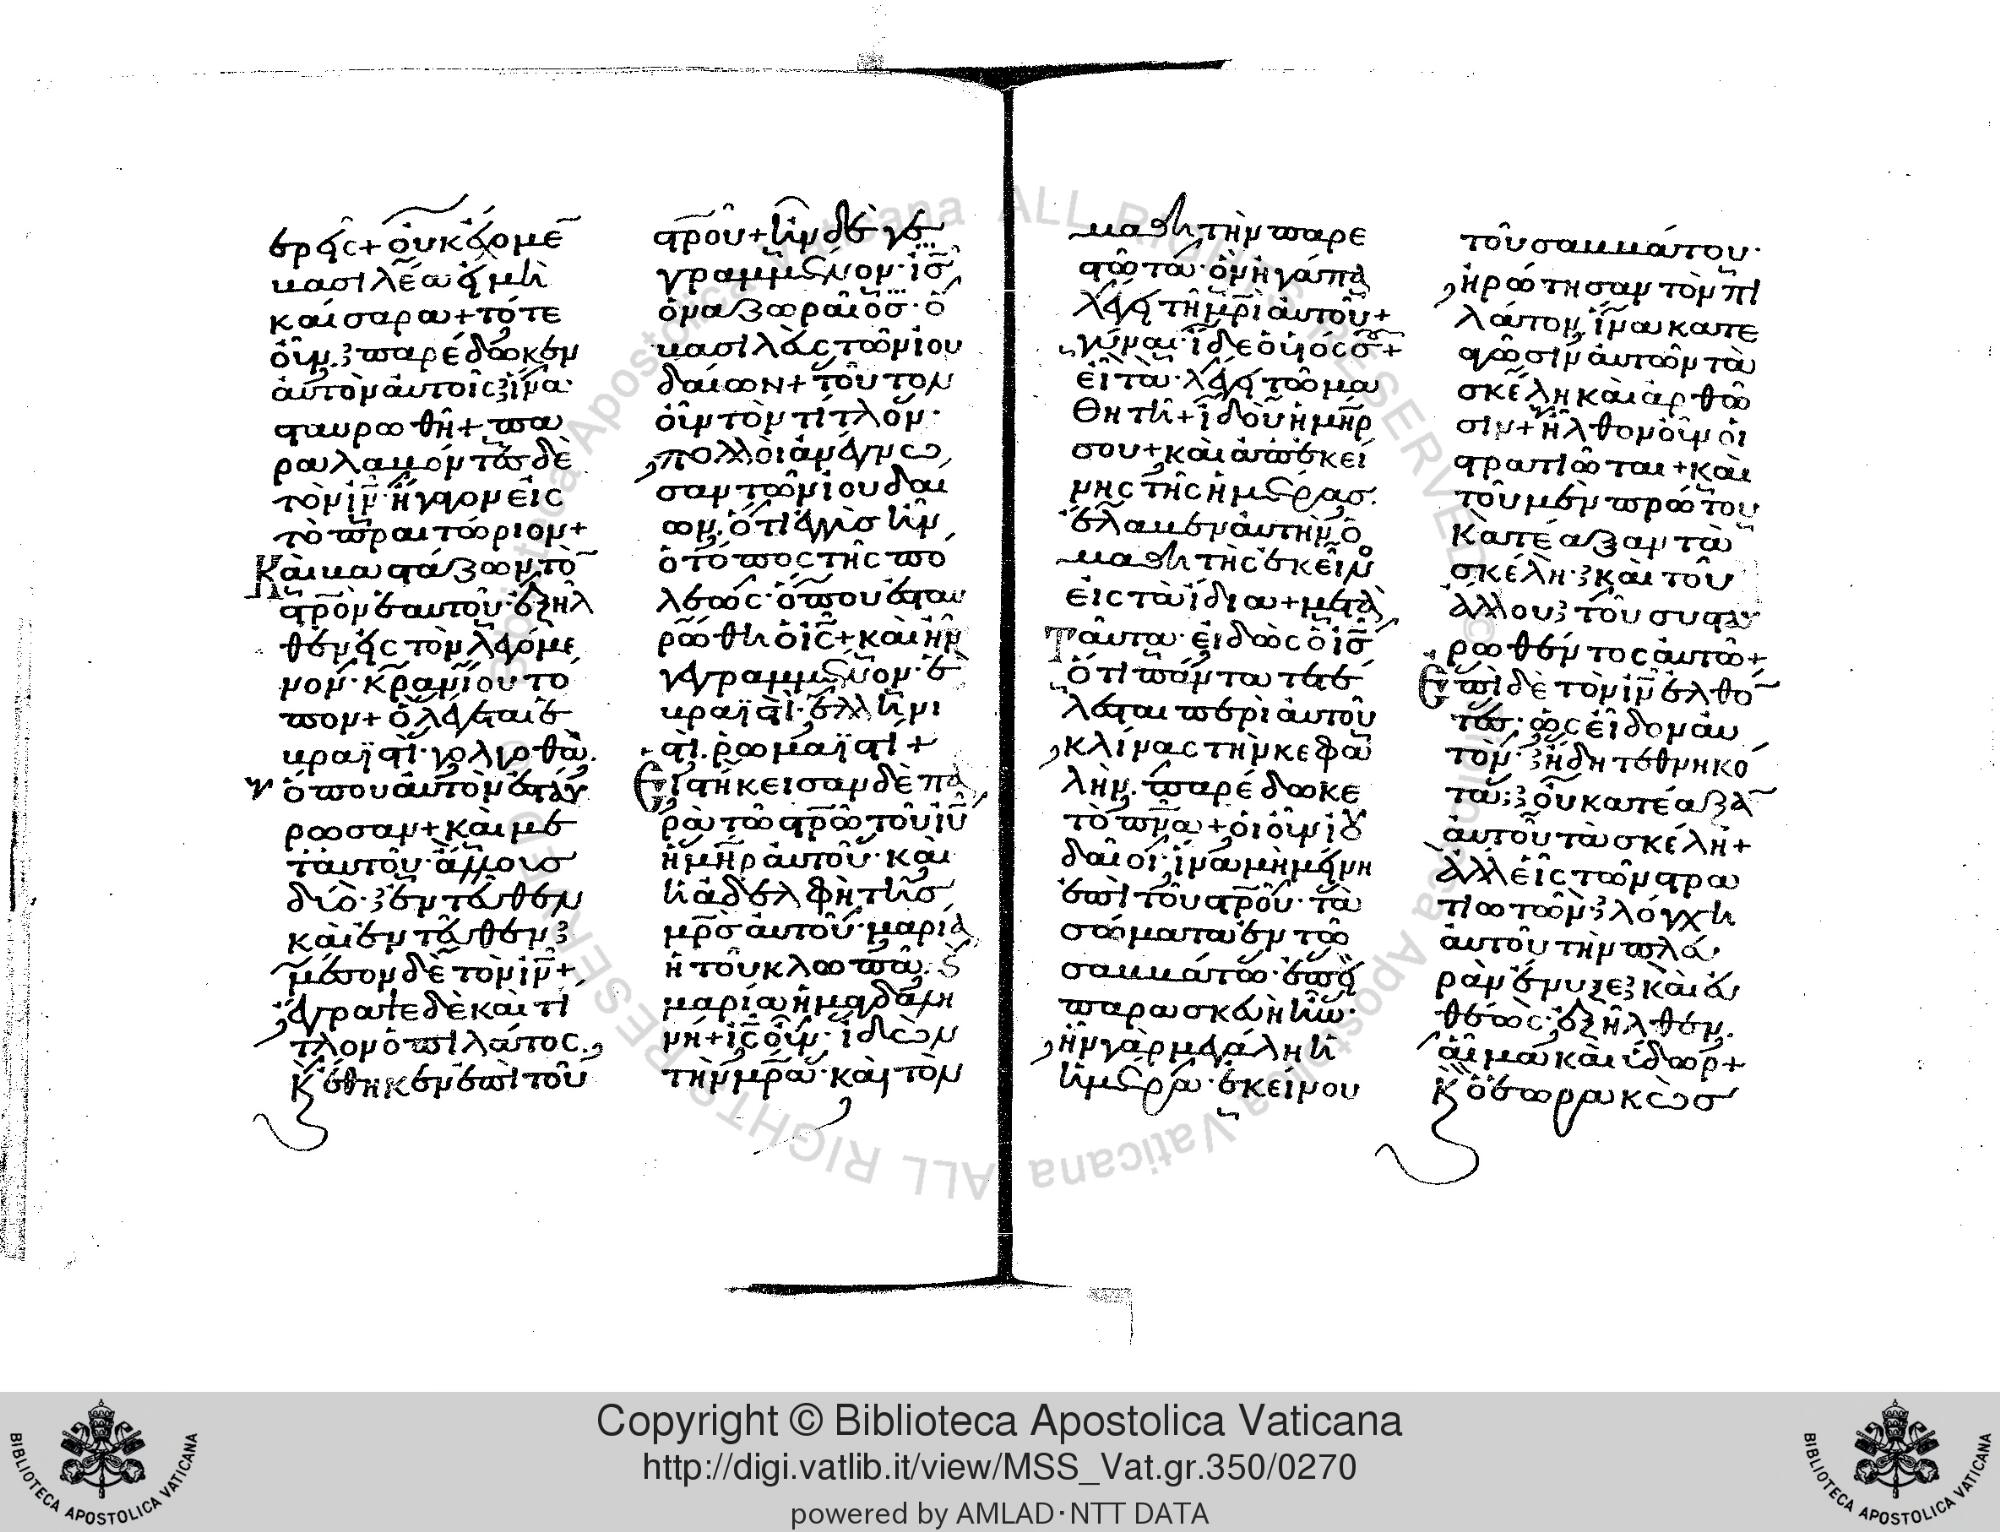 ερεῖς+ οὐκ ἔχομε̄
βασιλέα εἰ μὴ
καίσαρα+ τότε
οὖν παρέδωκεν
αὐτὸν αὐτοῖς ἵνα
σταυρωθῆ+ πα
ραλαβόντες δὲ
τὸν ιν̄· ἤγαγον εἰς
τὸ πραιτώριον+
Καὶ βαστάζων τὸ̄
στρο̄ν ἑαυτοῦ· ἐξῆλ
θεν εἰς τὸν λεγόμε
νον· κρανίου τό
πον+ ὃ λέγεται ἑ
βραϊστί· γολγοθᾶ.
ὅπου αὐτὸν ἐσταύ
ρωσαν+ καὶ με
τ' αὐτοῦ· ἄλλους
δύο· ἐντεῦθεν
καὶ ἐντεῦθεν
μέσον δὲ τὸν ιν̄+
ἔγραψε δὲ καὶ τί
τλον ὁ πιλάτος.
κ̀ ἔθηκεν ἐπὶ τοῦ
στρο̄ῦ+ ἦν δὲ γε
γραμμένον· ισ̄
ὁ ναζωραῖος· ὁ
βασιλεὺς τῶν ἰου
δαίων+ τοῦτον
οὖν τὸν τίτλον·
πολλοὶ ἀνέγνω
σαν τῶν ἰουδαί
ων. ὅτι ἐγγὺς ἦν
ὁ τόπος τῆς πό
λεως· ὅπου ἐσταυ
ρώθη ὁ ισ̄+ καὶ ἦν
γεγραμμένον· ἑ
βραϊστί· ἑλληνι
στί. ῥωμαϊστί+
Εἱστήκεισαν δὲ πα
ρὰ τῶ στρῶ̄ τοῦ ιῡ
ἡ μη̄ρ αὐτοῦ· καὶ
ἡ ἀδελφὴ τῆς
μρ̄ς αὐτοῦ· μαρία
ἡ τοῦ κλωπᾶ. κ̀
μαρία ἡ μαγδαλη
νή+ ισ̄ οὖν· ἰδὼν
τὴν μρ̄α· καὶ τὸν
μαθητὴν παρε
στῶτα· ὃν ἠγάπα
λέγει τῆ μρ̄ι αὐτοῦ+
γύναι· ἴδε ὁ υἱός σου+
εἶτα· λέγει τῶ μα
θητῆ+ ἰδοὺ ἡ μη̄ρ
σου+ καὶ ἀπ' ἐκεί
νης τῆς ἡμέρας.
ἔλαβεν αὐτὴν ὁ
μαθητὴς ἐκεῖνος
εἰς τὰ ἴδια+ μετὰ
Ταῦτα· εἰδὼς ὁ ισ̄
ὅτι πάντα τετέ
λεσται περὶ αὐτοῦ
κλίνας τὴν κεφα
λὴν. παρέδωκε
τὸ πν̄α+ οἱ οὖν ἰου
δαῖοι· ἵνα μὴ μείνη
ἐπὶ τοῦ στρο̄ῦ· τὰ
σώματα ἐν τῶ
σαββάτω· ἐπεὶ
παρασκευὴ ἦν·
ἦν γὰρ μεγάλη ἡ
ἡμέρα· ἐκείνου
τοῦ σαββάτου·
ἠρώτησαν τὸν πι
λάτον. ἵνα κατε
αγῶσιν αὐτῶν τὰ
σκέλη καὶ ἀρθῶ
σιν+ ἦλθον οὖν οἱ
στρατιῶται+ καὶ
τοῦ μὲν πρώτου
κατέαξαν τὰ
σκέλη· καὶ τοῦ
ἄλλου τοῦ συσταυ
ρωθέντος αὐτῶ+
Ἐπὶ δὲ τὸν ιν̄ ἐλθό̄
τες· ὡς εἶδον αὐ
τὸν· ἤδη τεθνηκό
τα· οὐ κατέαξᾱ
αὐτοῦ τὰ σκέλη+
ἀλλ' εἷς τῶν στρα
τιωτῶν· λόγχη
αὐτοῦ τὴν πλευ
ρὰν ἔνυξε καὶ εὐ
θέως· ἐξῆλθεν.
αἷμα καὶ ὕδωρ+
κ̀ ὁ ἑωρακὼς
Copyright © Biblioteca Apostolica Vaticana
http://digi.vatlib.it/view/MSS_Vat.gr.350/0270
powered by AMLAD·NTT DATA
BIBLIOTECA APOSTOLICA VATICANA
BIBLIOTECA APOSTOLICA VATICANA